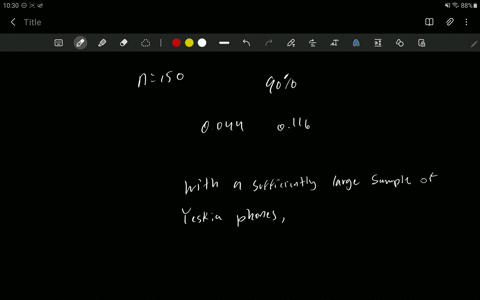 10:30
88%
Title
n=150 90%
0.044 0.116
with a sufficiently large sample of
Yeskia phones,